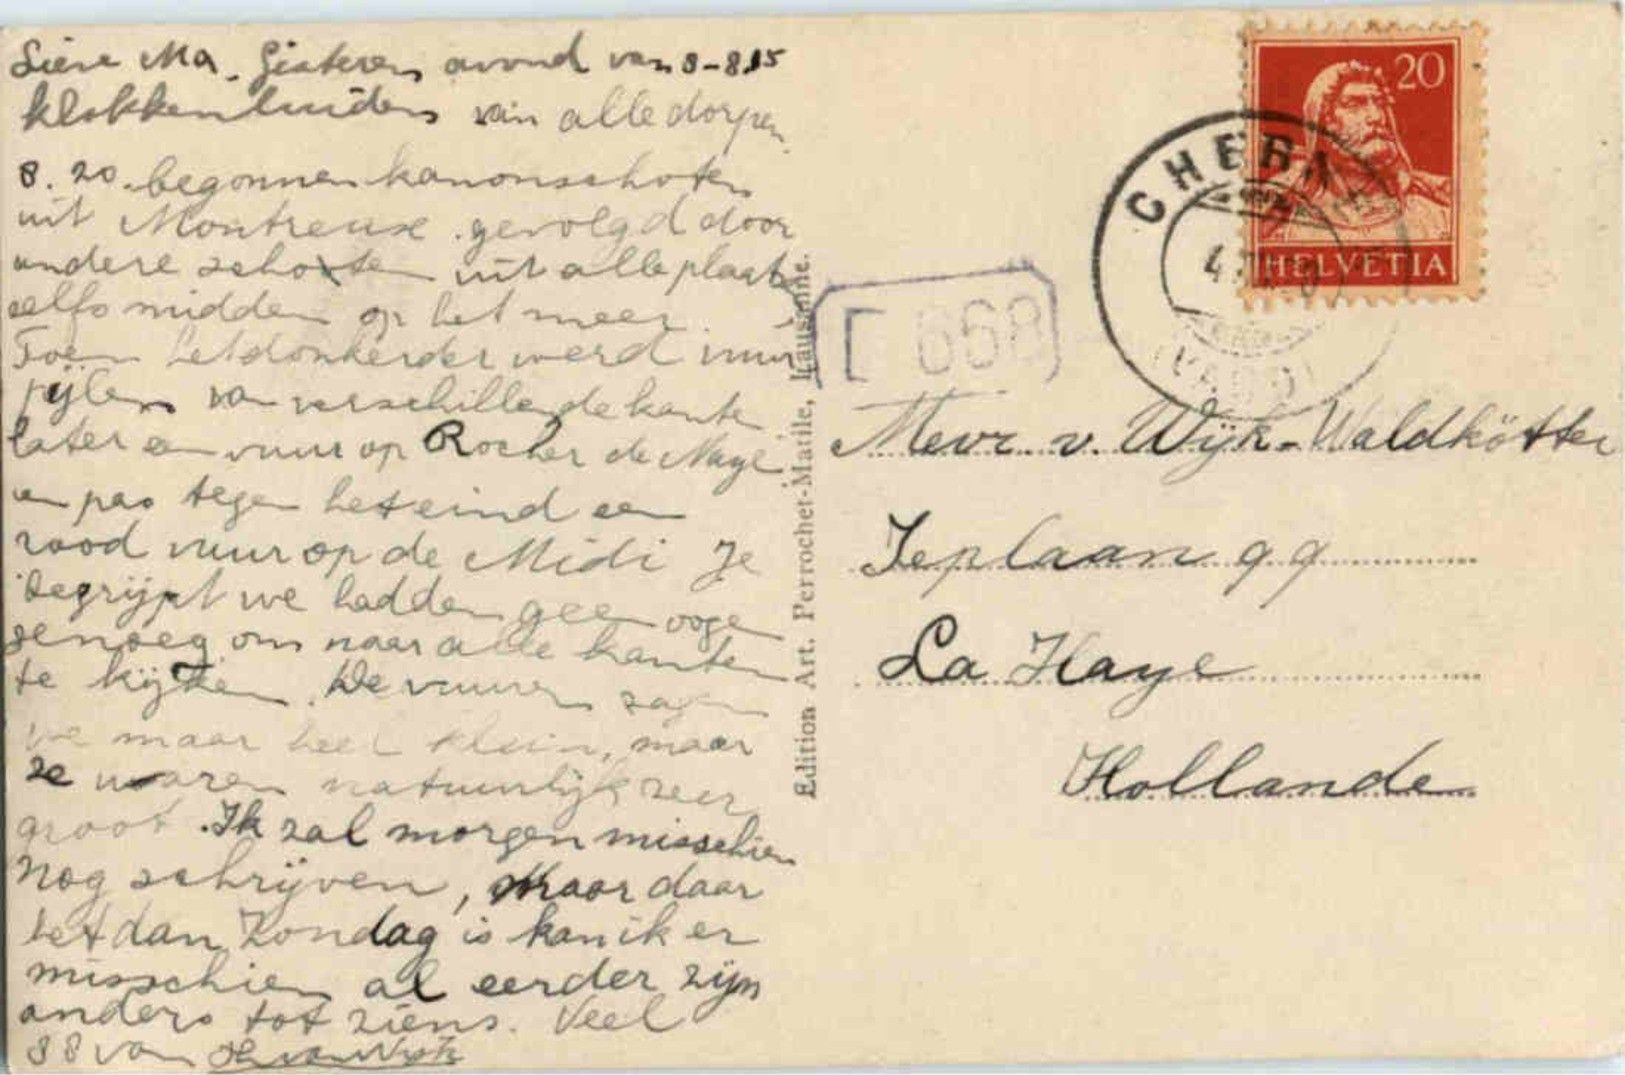 Lieve Ma. Gisteren avond van 8-8.15
klokkenluiden van alle dorpen
8.20 begonnen kanonschoten
uit Montreux gevolgd door
andere schoten uit alle plaats
zelfs midden op het meer.
Toen het donkerder werd vuur
pijlen van verschillende kanten
later een vuur op Rocher de Naye
en pas tegen het eind een
rood vuur op de Midi Je
begrijpt we hadden geen oogen
genoeg om naar alle kanten
te kijken. De vuren zagen
we maar heel klein, maar
ze waren natuurlijk zeer
groot. Ik zal morgen misschien
nog schrijven, maar daar
het dan Zondag is kan ik er
misschien al eerder zijn
anders tot ziens. Veel
88 van
Edition Art. Perrochet-Matile, Lausanne.
668
20
HELVETIA
CHEB
Mevr. v. Wijk-Waldkötter
Ieplaan 99
La Haye
Hollande